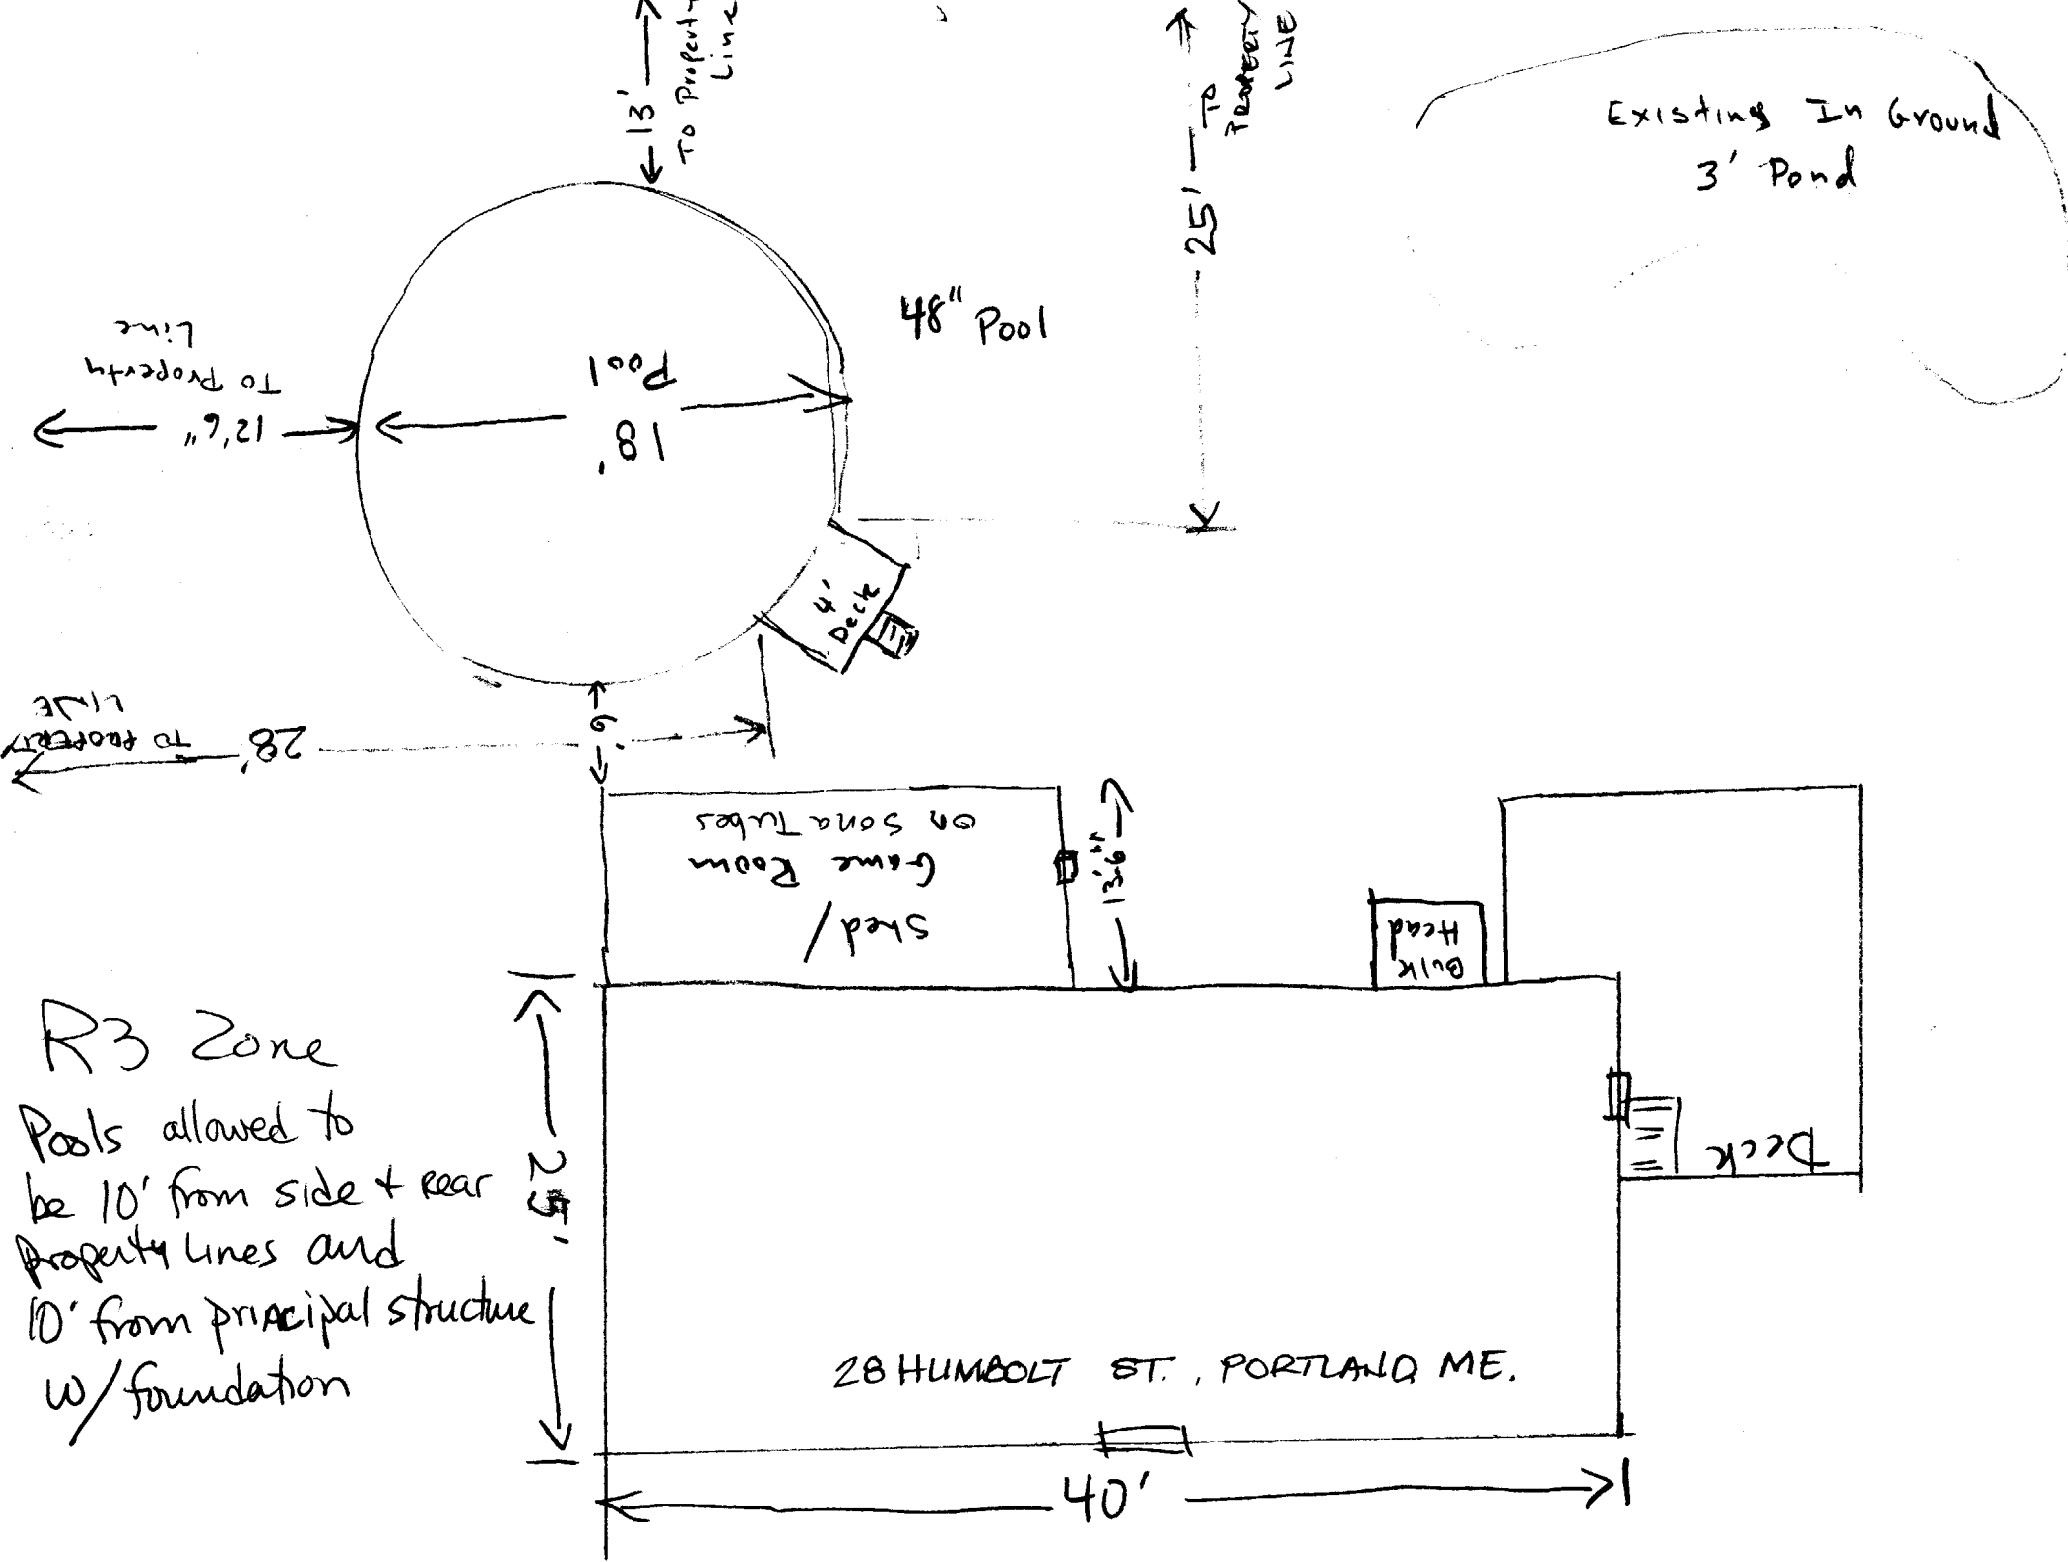 13'
To Property
Line
25'
TO
PROPERTY
LINE
Existing In Ground
3' Pond
48" Pool
To Property
Line
12'6"
18'
Pool
4'
Deck
28'
TO PROPERTY
LINE
Shed/
Game Room
on Sona Tubes
13'6"
Bulk
Head
Deck
R3 Zone
Pools allowed to
be 10' from side + rear
property lines and
10' from principal structure
w/foundation
25'
28 HUMBOLT ST., PORTLAND ME.
40'